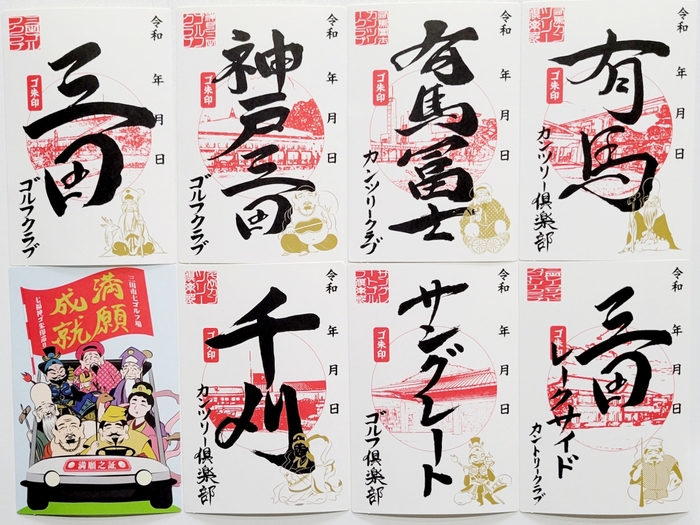 令和
年
月
日
ゴ朱印
三田
ゴルフクラブ
令和
年
月
日
ゴ朱印
神戸三田
ゴルフクラブ
令和
年
月
日
ゴ朱印
有馬冨士
カンツリークラブ
令和
年
月
日
ゴ朱印
有馬
カンツリー倶楽部
三田市七ゴルフ場
七福神ゴ朱印めぐり
満願
成就
満願之証
令和
年
月
日
ゴ朱印
千刈
カンツリー倶楽部
令和
年
月
日
ゴ朱印
サングレート
ゴルフ倶楽部
令和
年
月
日
ゴ朱印
三田
レークサイド
カントリークラブ